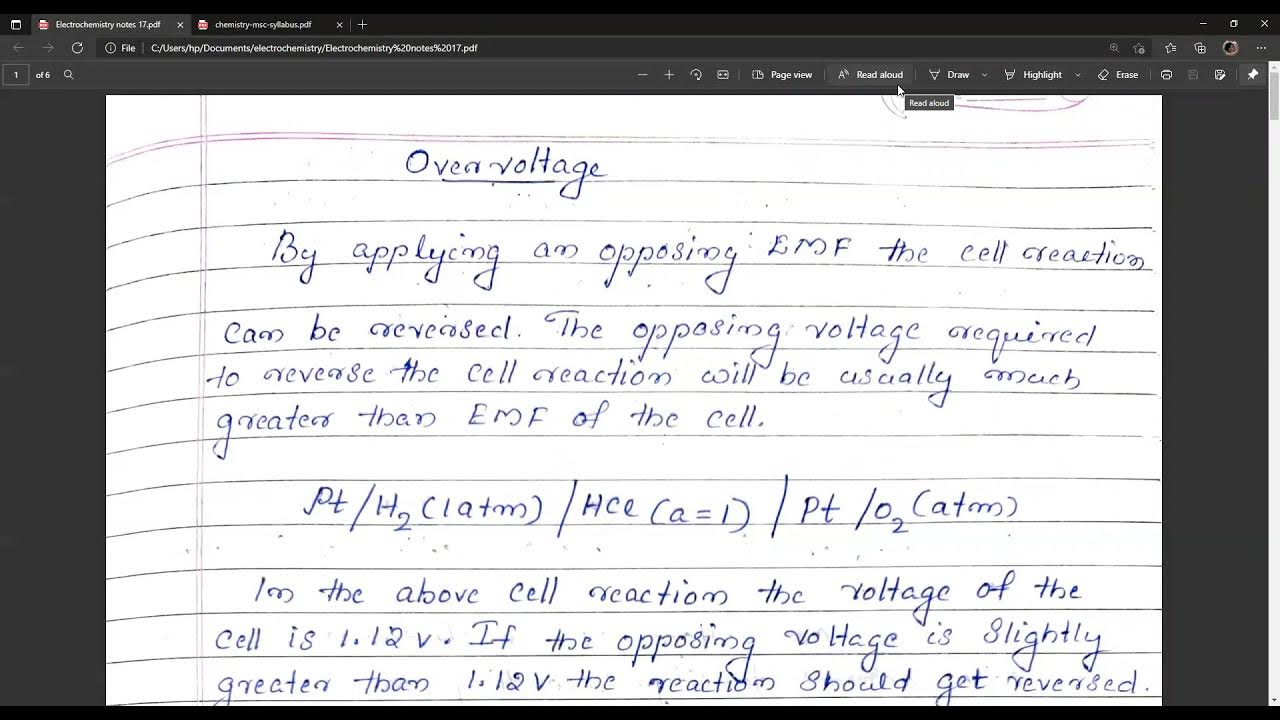 Electrochemistry notes 17.pdf
chemistry-msc-syllabus.pdf
File C:/Users/hp/Documents/electrochemistry/Electrochemistry%20notes%2017.pdf
1 of 6 Page view Read aloud Draw Highlight Erase
Read aloud
Overvoltage
By applying an opposing EMF the cell reaction
can be reversed. The opposing voltage required
to reverse the cell reaction will be usually much
greater than EMF of the cell.
Pt/H₂(1atm)/HCl(a=1)/Pt/O₂(atm)
In the above cell reaction the voltage of the
cell is 1.12v. If the opposing voltage is slightly
greater than 1.12V the reaction should get reversed.